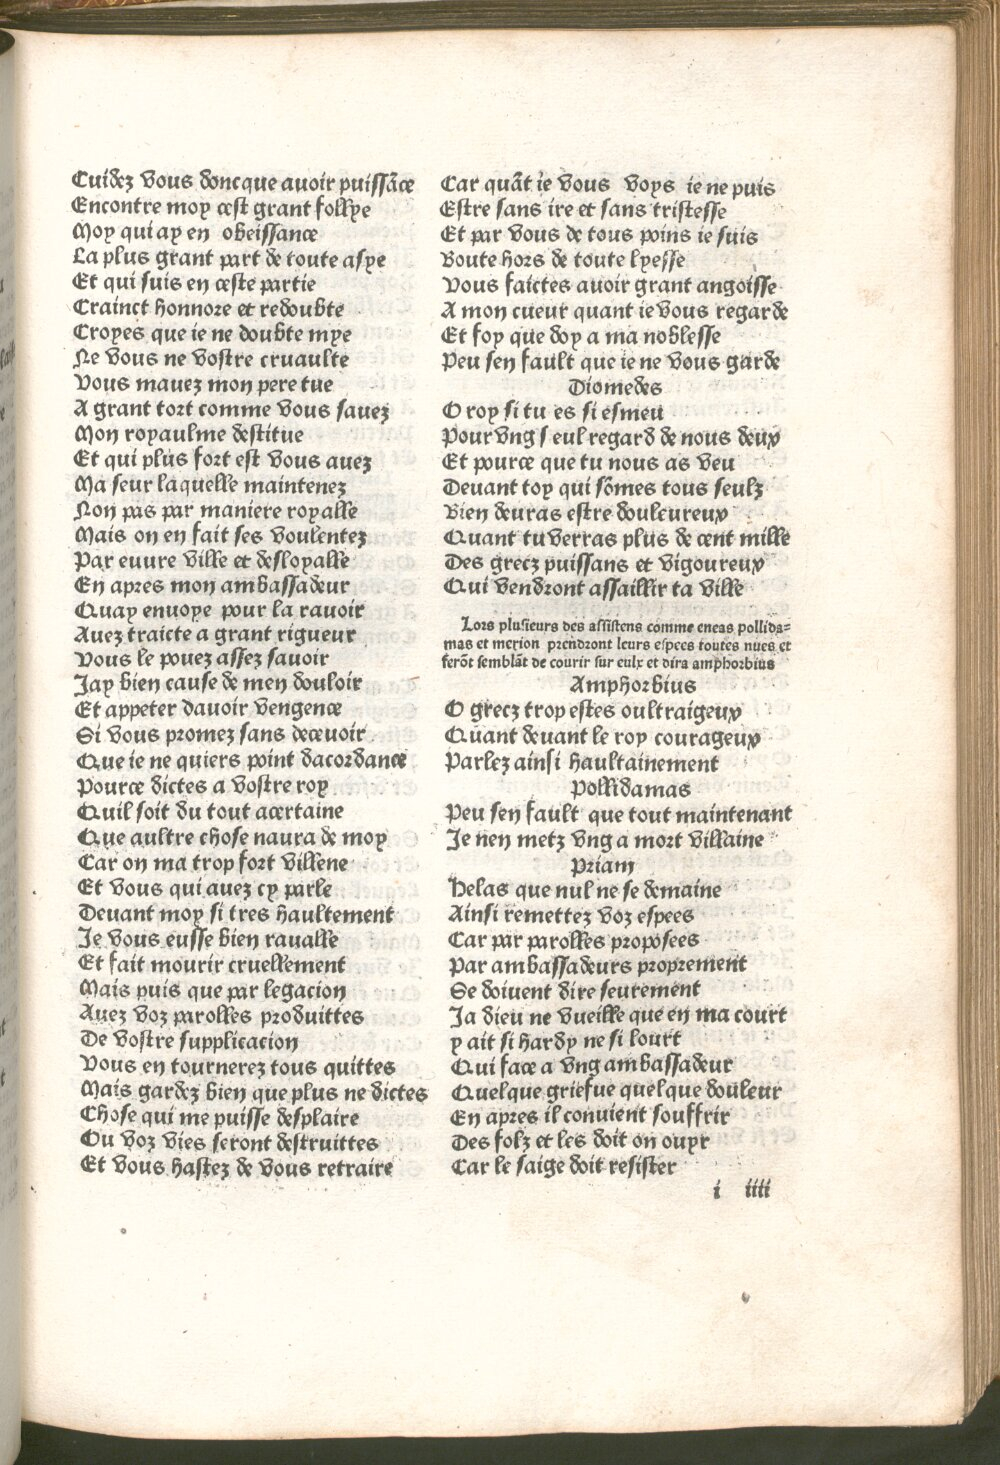 Cuidez vous doncque auoir puissãce
Encontre moy cest grant follye
Moy qui ay en obeissance
La plus grant part de toute asye
Et qui suis en ceste partie
Crainct honnore et redoubte
Croyes que ie ne doubte mye
Ne vous ne vostre cruaulte
Vous mauez mon pere tue
A grant tort comme vous sauez
Mon royaulme destitue
Et qui plus fort est vous auez
Ma seur laquelle maintenez
Non pas par maniere royalle
Mais on en fait ses voulentez
Par euure ville et desloyalle
En apres mon ambassadeur
Quay enuoye pour la rauoir
Auez traicte a grant rigueur
Vous le pouez assez sauoir
Jay bien cause de men douloir
Et appeter dauoir vengence
Si vous promez sans deceuoir
Que ie ne quiers point dacordance
Pource dictes a vostre roy
Quil soit du tout acertaine
Que aultre chose naura de moy
Car on ma trop fort villene
Et vous qui auez cy parle
Deuant moy si tres haultement
Je vous eusse bien raualle
Et fait mourir cruellement
Mais puis que par legacion
Auez voz parolles produittes
De vostre supplicacion
Vous en tournerez tous quittes
Mais gardez bien que plus ne dictes
Chose qui me puisse desplaire
Ou voz vies seront destruittes
Et vous hastez de vous retraire
Car quãt ie vous voys ie ne puis
Estre sans ire et sans tristesse
Et par vous de tous poins ie suis
Boute hors de toute lyesse
Vous faictes auoir grant angoisse
A mon cueur quant ie vous regarde
Et foy que doy a ma noblesse
Peu sen fault que ie ne vous garde
Diomedes
O roy si tu es si esmeu
Pour vng seul regard de nous deux
Et pource que tu nous as veu
Deuant toy qui sõmes tous seulz
Bien deuras estre douleureux
Quant tu verras plus de cent mille
Des grecz puissans et vigoureux
Qui vendront assaillir ta ville
Lors plusieurs des assistens comme eneas pollida=
mas et merion prendront leurs espees toutes nues et
ferõt semblãt de courir sur eulx et dira amphorbius
Amphorbius
O grecz trop estes oultraigeux
Quant deuant le roy courageux
Parlez ainsi haultainement
Pollidamas
Peu sen fault que tout maintenant
Je nen metz vng a mort villaine
Priam
Helas que nul ne se demaine
Ainsi remettez voz espees
Car par parolles proposees
Par ambassadeurs proprement
Se doiuent dire seurement
Ja dieu ne vueille que en ma court
y ait si hardy ne si lourt
Qui face a vng ambassadeur
Quelque griefue quelque douleur
En apres il conuient souffrir
Des folz et les doit on ouyr
Car le saige doit resister
i iiii